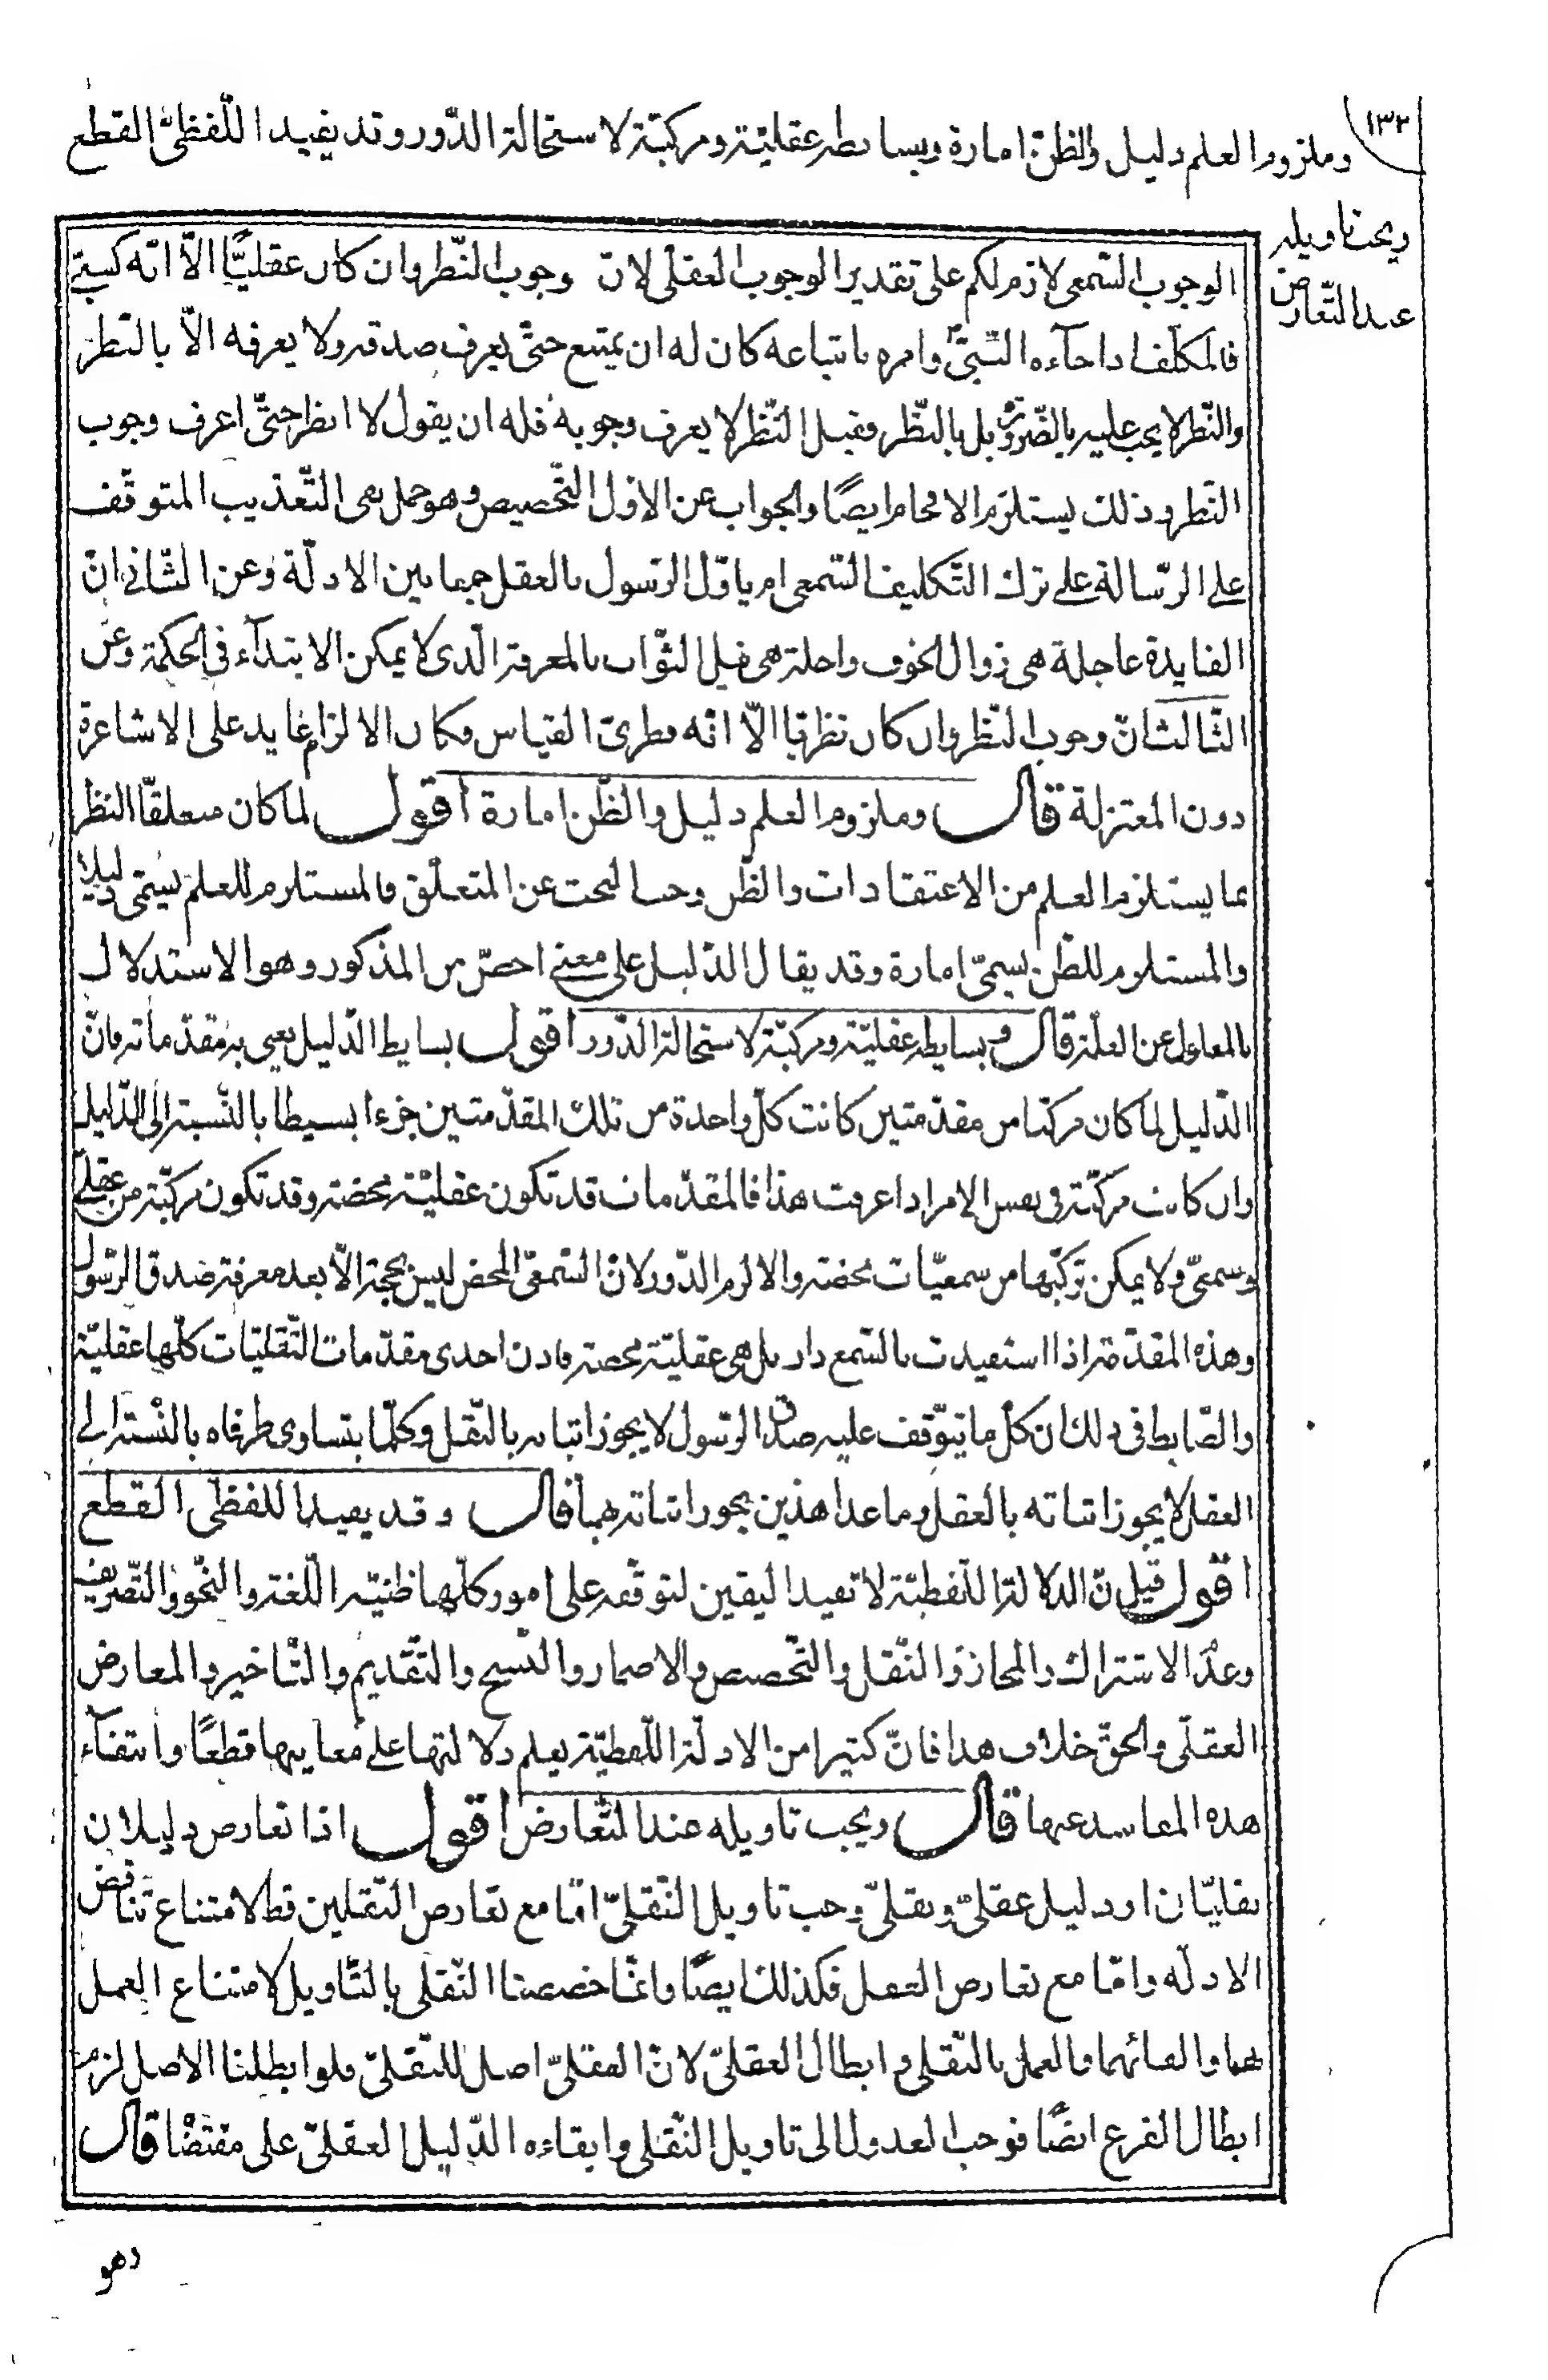 ١٣٢
وملزوم العلم دليل والظن امارة وبسايطه عقلية ومركبة لاستحالة الدور وقد يفيد اللفظي القطع
ويجب تاويله
عند التعارض
الوجوب السمعي لازم لكم على تقدير الوجوب العقلي لان وجوب النظر وان كان عقليا الا انه كسبي
فالمكلف اذا جآءه النبي وامره باتباعه كان له ان يمتنع حتى يعرف صدقه ولا يعرفه الا بالنظر
والنظر لا يجب عليه بالضرورة بل بالنظر فقبل النظر لا يعرف وجوبه فله ان يقول لا انظر حتى اعرف وجوب
النظر وذلك يستلزم الافحام ايضا والجواب عن الاول التخصيص وهو حمل نفي التعذيب المتوقف
على الرسالة على ترك التكليف السمعي او ياول الرسول بالعقل جمعا بين الادلة وعن الثاني ان
الفايدة عاجلة هي زوال الخوف واجلة هي نيل الثواب بالمعرفة الذي لا يمكن الابتدآء في الحكمة وعن
الثالث ان وجوب النظر وان كان نظريا الا انه فطري القياس فكان الالزام عايد على الاشاعرة
دون المعتزلة قال وملزوم العلم دليل والظن امارة اقول لما كان متعلقا النظر
بما يستلزم العلم من الاعتقادات والظن وجب البحث عن المتعلق فالمستلزم للعلم يسمى دليلا
والمستلزم للظن يسمى امارة وقد يقال الدليل على معنى اخص من المذكور وهو الاستدلال
بالمعلول عن العلة قال وبسايطه عقلية ومركبة لاستحالة الدور اقول بسايط الدليل يعني به مقدماته فان
الدليل لما كان مركبا من مقدمتين كانت كل واحدة من تلك المقدمتين جزءا بسيطا بالنسبة الى الدليل
وان كانت مركبة في نفس الامر اذا عرفت هذا فالمقدمات قد تكون عقلية محضة وقد تكون مركبة من عقلي
وسمعي ولا يمكن تركبها من سمعيات محضة والا لزم الدور لان السمعي المحض ليس بحجة الا بعد معرفة صدق الرسول
وهذه المقدمة اذا استفيدت بالسمع دار بل هي عقلية محضة فاذن احدى مقدمات النقليات كلها عقلية
والضابط في ذلك ان كل ما يتوقف عليه صدق الرسول لا يجوز اثباته بالنقل وكلما يتساوى طرفاه بالنسبة الى
العقل لا يجوز اثباته بالعقل وما عدا هذين يجوز اثباته بهما قال وقد يفيد اللفظي القطع
اقول قيل ان الدلالة اللفظية لا تفيد اليقين لتوقفه على امور كلها ظنية اللغة والنحو والتصريف
وعدم الاشتراك والمجاز والنقل والتخصيص والاضمار والنسخ والتقديم والتاخير والمعارض
العقلي والحق خلاف هذا فان كثيرا من الادلة اللفظية يعلم دلالتها على معانيها قطعا وانتفآء
هذه المفاسد عنها قال ويجب تاويله عند التعارض اقول اذا تعارض دليلان
نقليان او دليل عقلي ونقلي وجب تاويل النقلي اما مع تعارض النقلين فظ لامتناع تناقض
الادله واما مع تعارض العقل فكذلك ايضا وانما خصصنا النقلي بالتاويل لامتناع العمل
بهما والغائهما والعمل بالنقلي وابطال العقلي لان العقلي اصل للنقلي فلو ابطلنا الاصل لزم
ابطال الفرع ايضا فوجب العدول الى تاويل النقلي وابقاءه الدليل العقلي على مقتضا قال
وهو